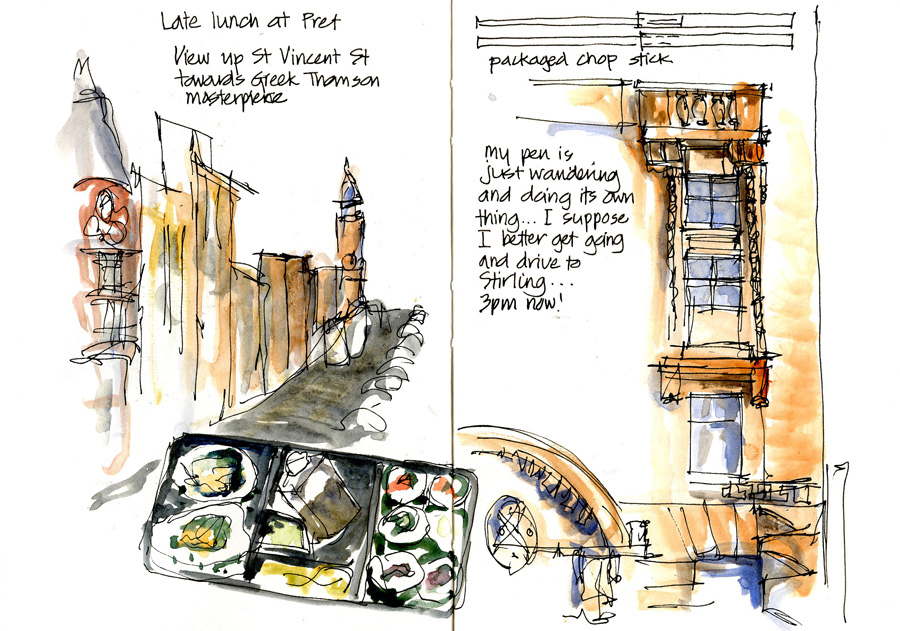 Late lunch at Pret
View up St Vincent St
towards Greek Thomson
masterpiece
packaged chop stick
my pen is
just wandering
and doing its own
thing... I suppose
I better get going
and drive to
Stirling...
3pm now!